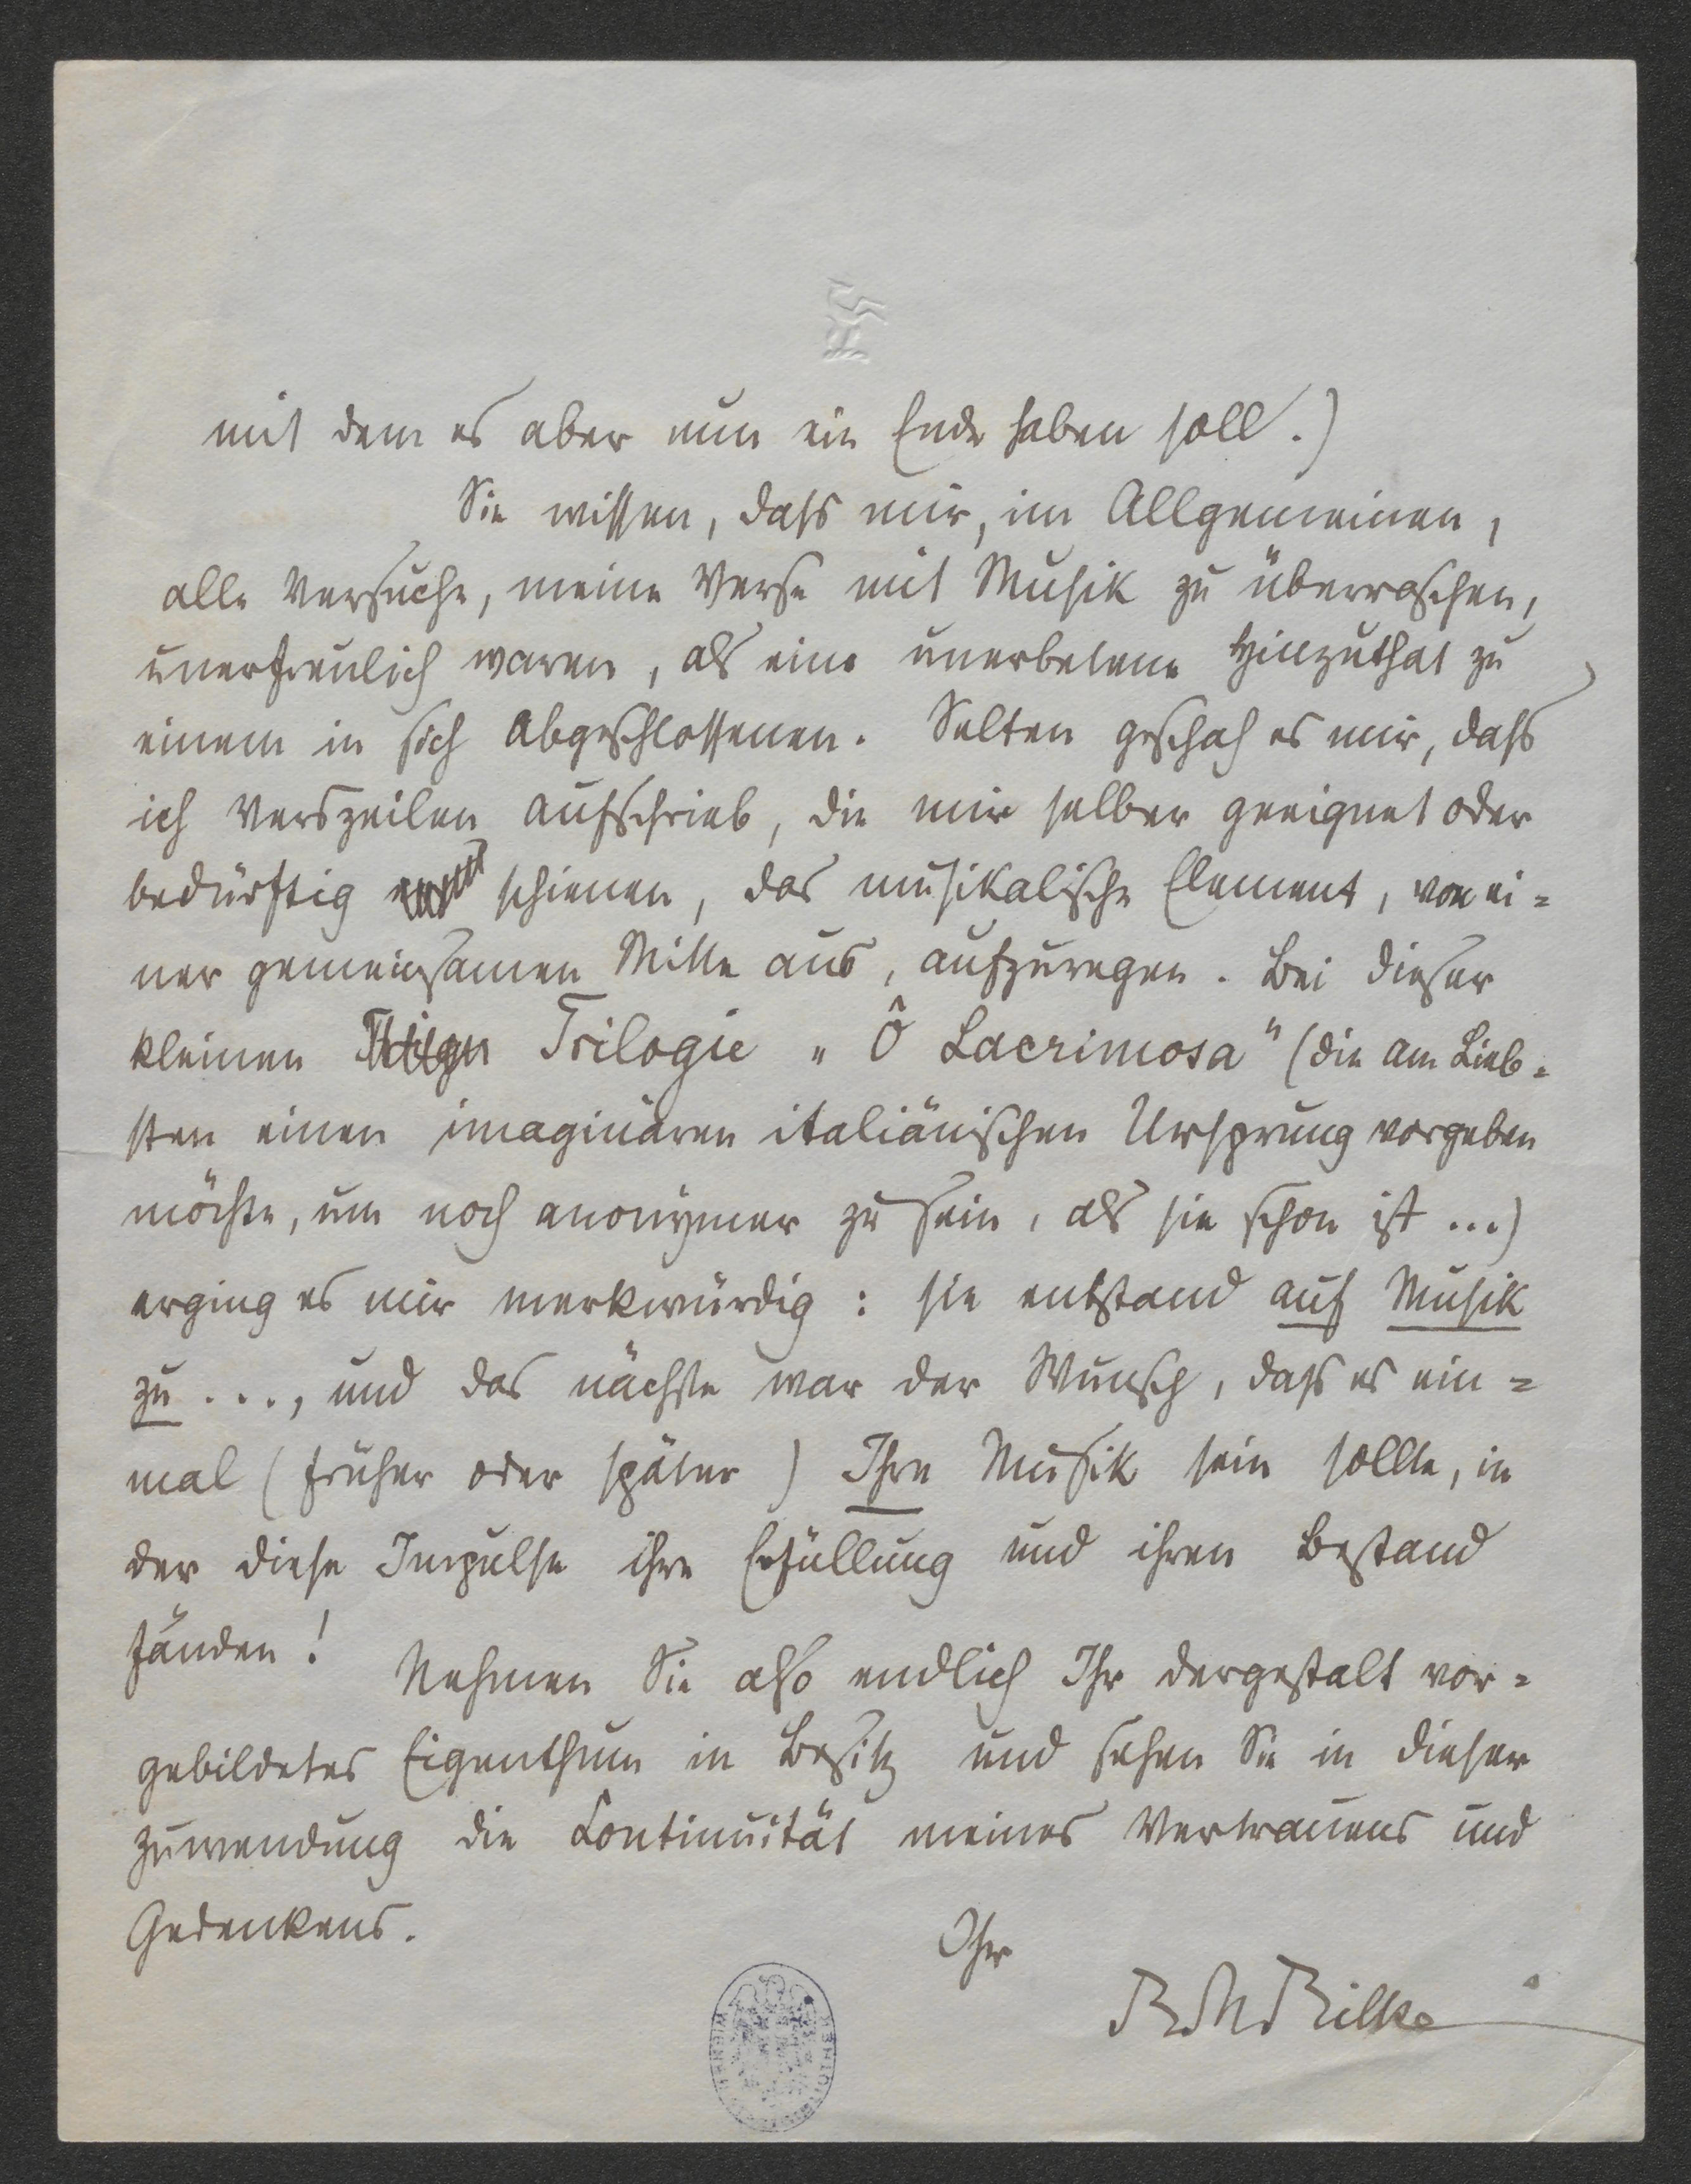 mit dem es aber nun ein Ende haben soll.)
Sie wissen, dass mir, im Allgemeinen,
alle Versuche, meine Verse mit Musik zu überraschen,
unerfreulich waren, als eine unerbetene Hinzuthat zu
einem in sich Abgeschlossenen. Selten geschah es mir, dass
ich Verszeilen aufschrieb, die mir selber geeignet oder
bedürftig schienen, das musikalische Element, von ei=
ner gemeinsamen Mitte aus, aufzuregen. Bei dieser
kleinen Trilogie „Ô Lacrimosa" (die am Lieb=
sten einen imaginären italiänischen Ursprung vorgeben
möchte, um noch anonymer zu sein, als sie schon ist ...)
erging es mir merkwürdig: sie entstand auf Musik
zu ..., und das nächste war der Wunsch, dass es ein=
mal (früher oder später) Ihre Musik sein sollte, in
der diese Impulse ihre Erfüllung und ihren Bestand
fänden!
Nehmen Sie also endlich Ihr dergestalt vor=
gebildetes Eigenthum in Besitz und sehen Sie in dieser
Zuwendung die Continuität meines Vertrauens und
Gedenkens.
Ihr
RMRilke